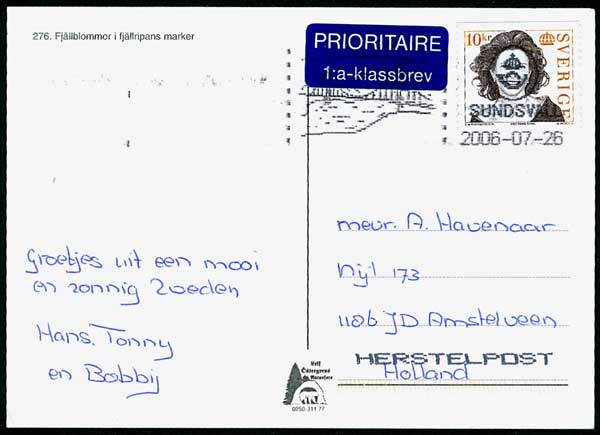 276. Fjällblommor i fjällripans marker
PRIORITAIRE
1:a-klassbrev
10kr
SVERIGE
SUNDSVALL
2006-07-26
Groetjes uit een mooi
en zonnig Zweden
Hans, Tonny
en Bobbij
mevr. A. Havenaar
Nijl 173
1186 JD Amstelveen
HERSTELPOST
Holland
0250-311 77